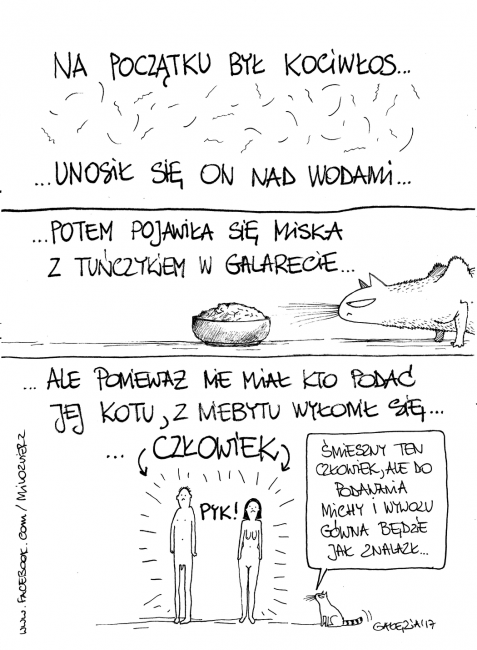 NA POCZĄTKU BYŁ KOCIWŁOS...
...UNOSIŁ SIĘ ON NAD WODAMI...
...POTEM POJAWIŁA SIĘ MISKA
Z TUŃCZYKIEM W GALARECIE...
... ALE PONIEWAŻ NIE MIAŁ KTO PODAĆ
JEJ KOTU, Z NIEBYTU WYŁONIŁ SIĘ...
... CZŁOWIEK
PYK!
ŚMIESZNY TEN
CZŁOWIEK, ALE DO
PODAWANIA
MICHY I WYWOZU
GÓWNA BĘDZIE
JAK ZNALAZŁ...
WWW.FACEBOOK.COM/MILOZWIERZ
GAŁĘZIA'17